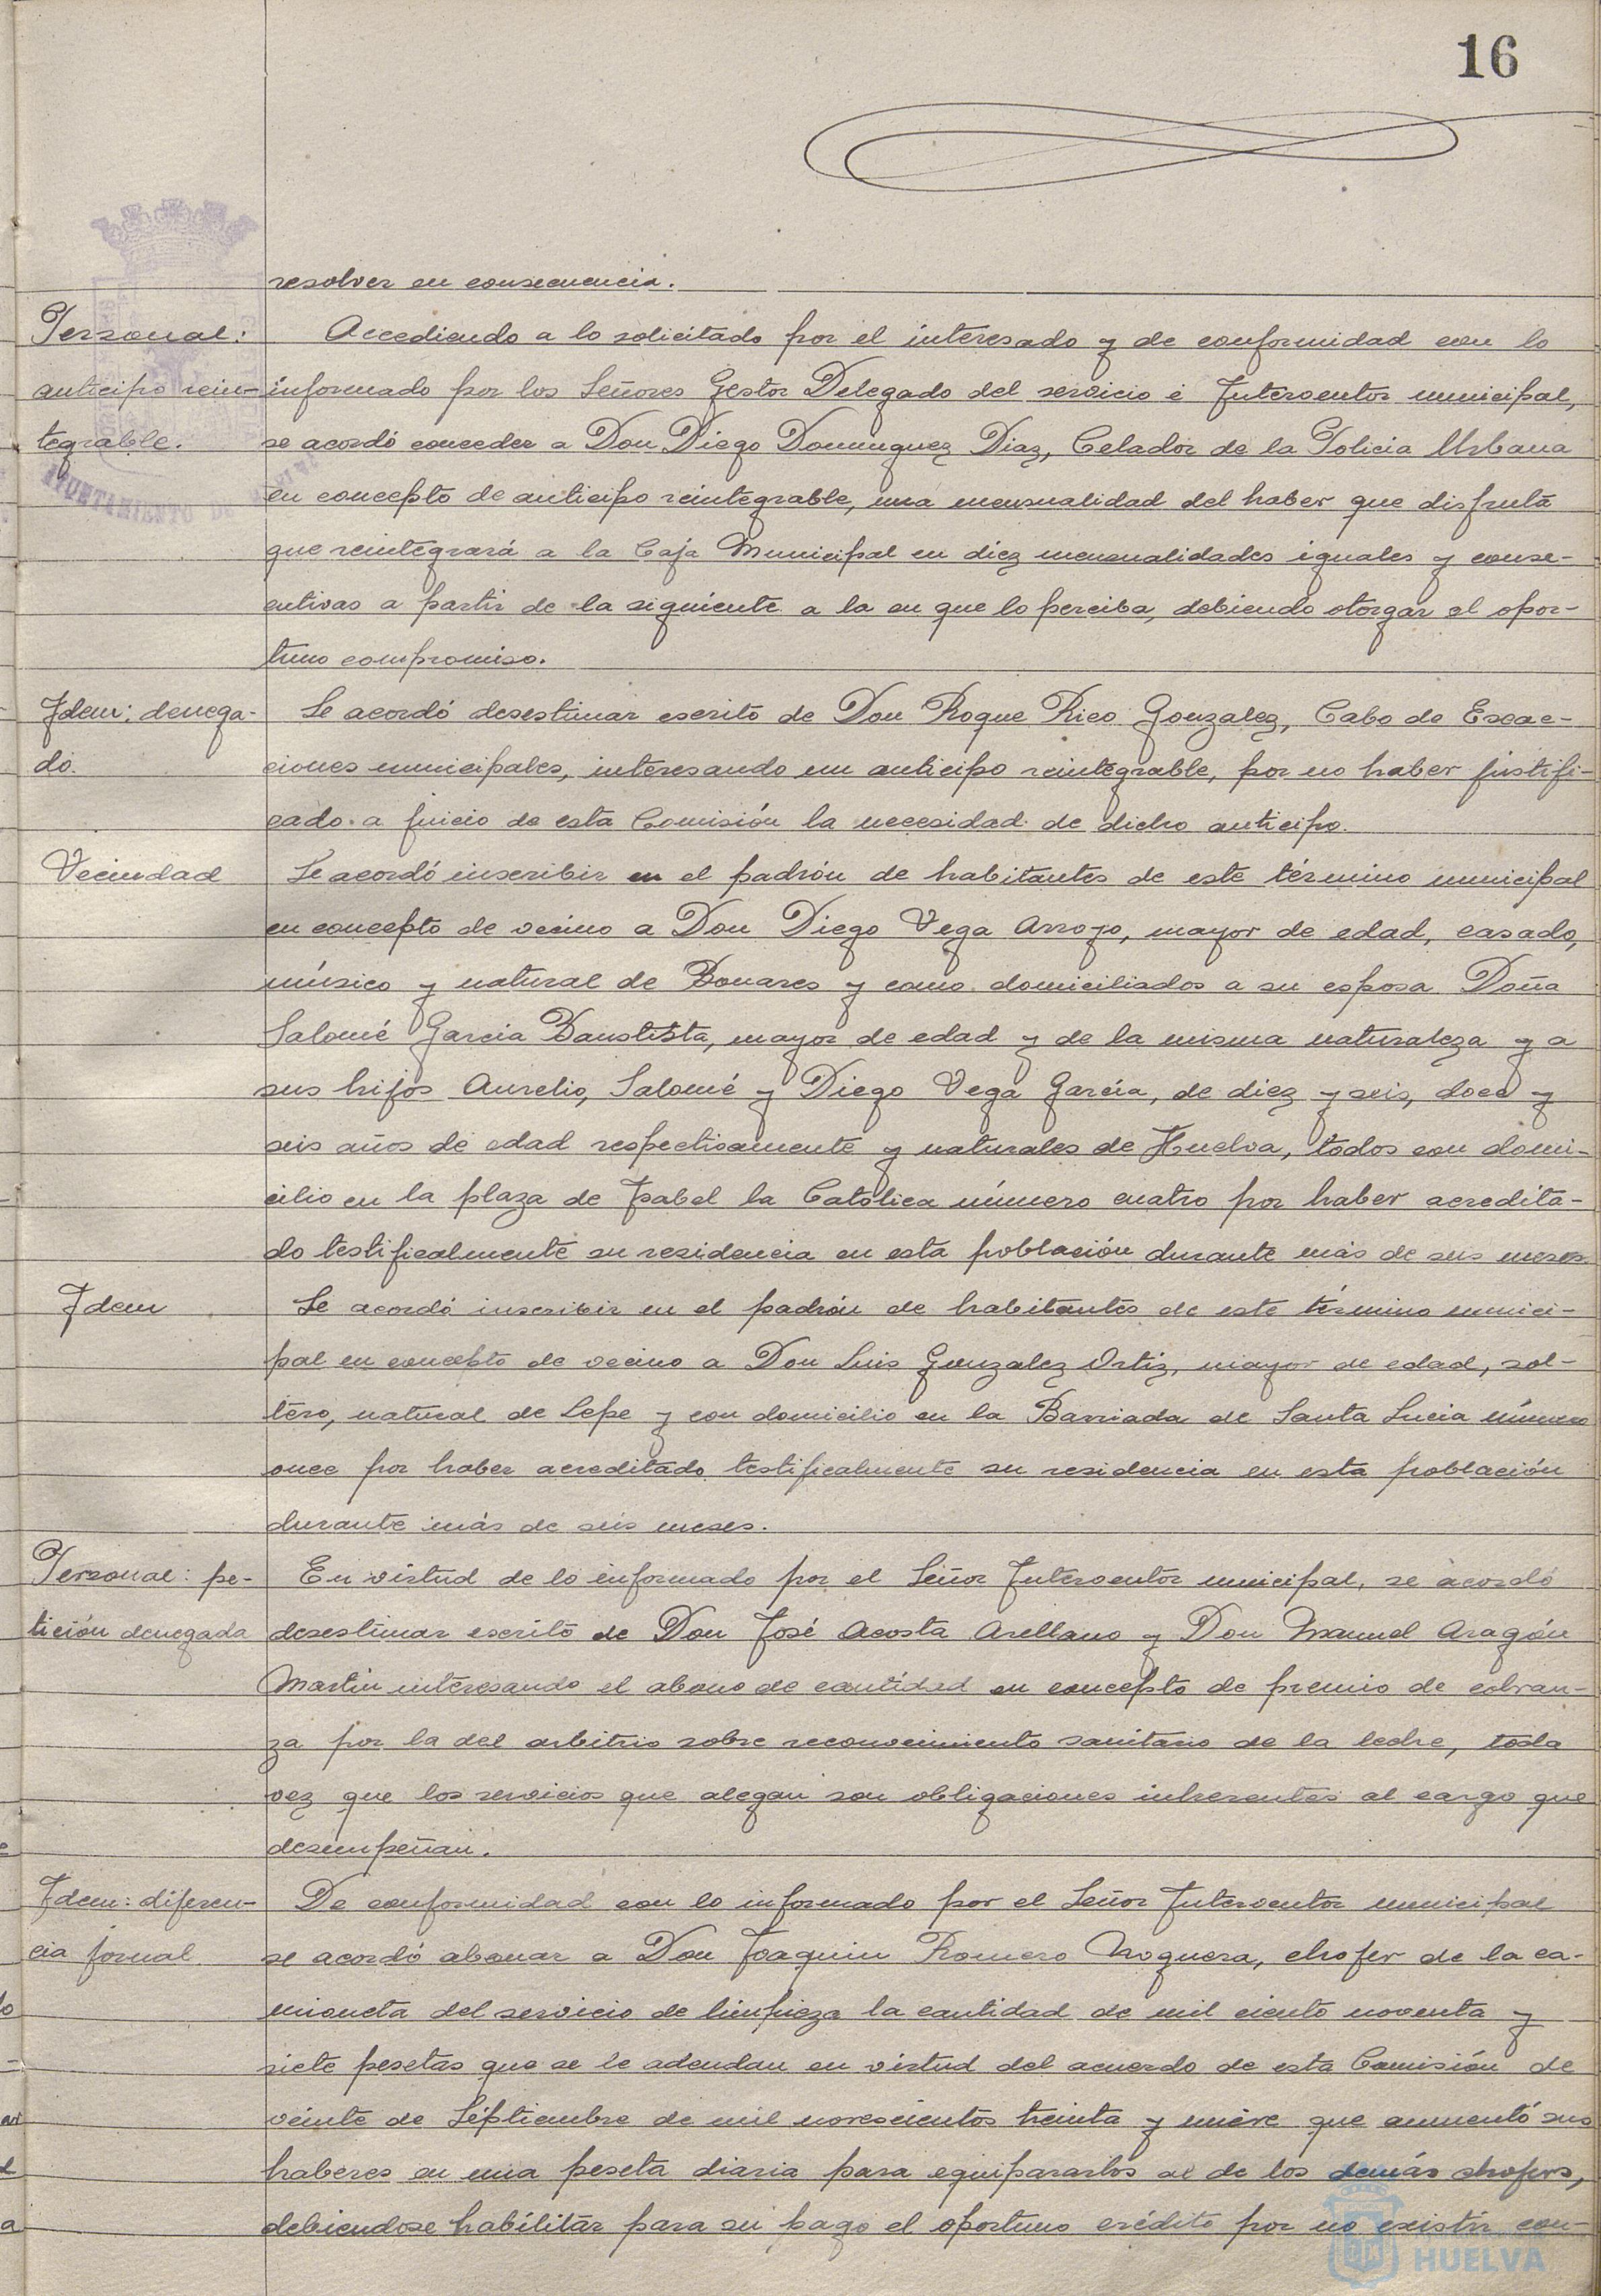 16
resolver en consecuencia.
Personal: Accediendo a lo solicitado por el interesado y de conformidad con lo
anticipo rein- informado por los Señores Gestor Delegado del servicio é Interventor municipal,
tegrable. se acordó conceder a Don Diego Dominguez Diaz, Celador de la Policia Urbana
en concepto de anticipo reintegrable, una mensualidad del haber que disfruta
que reintegrará a la Caja Municipal en diez mensualidades iguales y conse-
cutivas a partir de la siguiente a la en que lo perciba, debiendo otorgar el opor-
tuno compromiso.
Idem: denega- Se acordó desestimar escrito de Don Roque Rico Gonzalez, Cabo de Exac-
do. ciones municipales, interesando un anticipo reintegrable, por no haber justifi-
cado a juicio de esta Comisión la necesidad de dicho anticipo.
Vecindad Se acordó inscribir en el padrón de habitantes de este término municipal
en concepto de vecino a Don Diego Vega Arroyo, mayor de edad, casado,
músico y natural de Bonares y como domiciliados a su esposa Doña
Salomé Garcia Bautista, mayor de edad y de la misma naturaleza y a
sus hijos Aurelio, Salomé y Diego Vega García, de diez y seis, doce y
seis años de edad respectivamente y naturales de Huelva, todos con domi-
cilio en la plaza de Isabel la Católica número cuatro por haber acredita-
do testificalmente su residencia en esta población durante más de seis meses.
Idem Se acordó inscribir en el padrón de habitantes de este término munici-
pal en concepto de vecino a Don Luis Gonzalez Ortiz, mayor de edad, sol-
tero, natural de Lepe y con domicilio en la Barriada de Santa Lucia número
once por haber acreditado testificalmente su residencia en esta población
durante más de seis meses.
Personal: pe- En virtud de lo informado por el Señor Interventor municipal, se acordó
tición denegada desestimar escrito de Don José Acosta Arellano y Don Manuel Aragón
Martin interesando el abono de cantidad en concepto de premio de cobran-
za por la del arbitrio sobre reconocimiento sanitario de la leche, toda
vez que los servicios que alegan son obligaciones inherentes al cargo que
desempeñan.
Idem: diferen- De conformidad con lo informado por el Señor Interventor municipal
cia jornal. se acordó abonar a Don Joaquin Romero Noguera, chofer de la ca-
mioneta del servicio de limpieza la cantidad de mil ciento noventa y
siete pesetas que se le adeudan en virtud del acuerdo de esta Comisión de
veinte de Séptiembre de mil novescientos treinta y nueve que aumentó sus
haberes en una peseta diaria para equipararlos al de los demás chofers,
debiendose habilitar para su pago el oportuno crédito por no existir con-
AYUNTAMIENTO DE
HUELVA